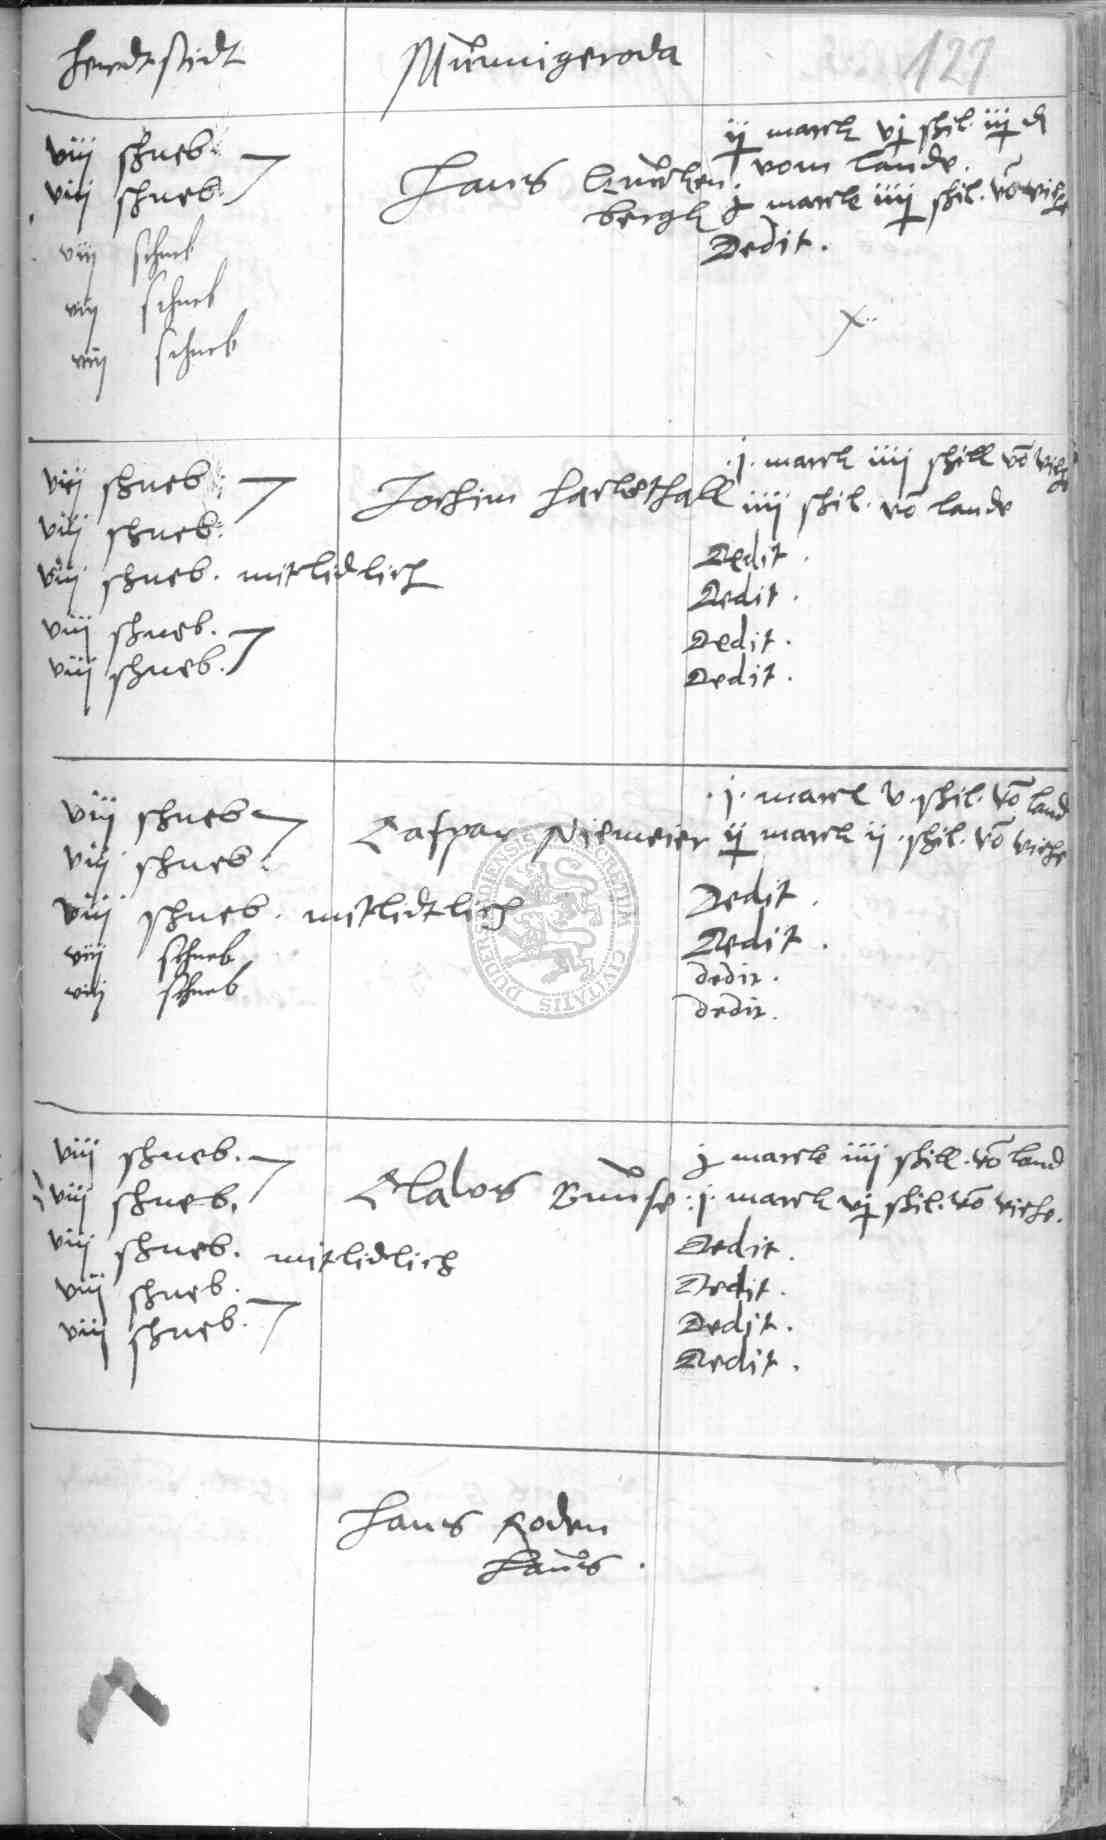 herdtstidt
Münnigeroda
127
viij schneb.
viij schneb.
viij schneb
viij schneb
viij schneb
Hans
bergk
ij marck vj schil. iij d
vom lande.
j marck iiij schil. vō viehe
Dedit.
viij schneb.
viij schneb.
viij schneb. mitlidlich
viij schneb.
viij schneb.
Jochim Harkethall
.j. marck iiij schill vō viehe
iiij schil. vō lande
Dedit.
Dedit.
Dedit.
Dedit.
viij schneb
viij schneb.
viij schneb. mitlidtlich
viij schneb
viij schneb
Caspar Niemeier
.j. marck v. schil. vō land
ij marck ij. schil. vō viehe
Dedit.
Dedit.
dedit.
dedit.
SIGILLUM SECRETUM CIVITATIS DUDERSTADIENSIS
viij schneb.
viij schneb.
viij schneb. mitlidlich
viij schneb.
viij schneb.
Clawes Buuse
j marck iiij schill. vō land
.j. marck vj schil. vō viehe.
Dedit.
Dedit.
Dedit.
Dedit.
Hans Roden
Haus.